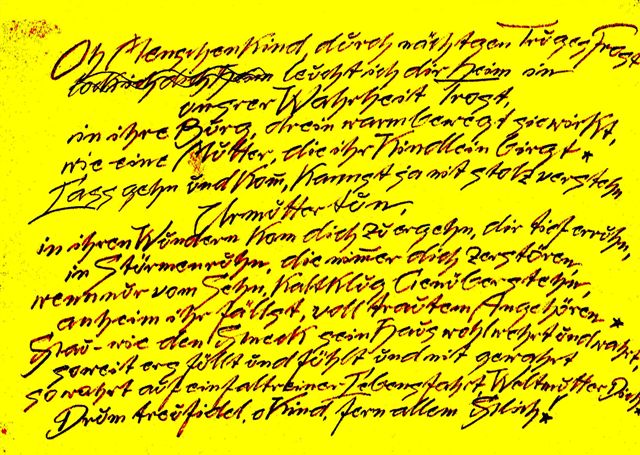 Oh Menschenkind, durch nächtgen Truges Frost
leucht ich dir heim in
unsrer Wahrheit Trost,
in ihre Burg, drein warm bewegt sie wirkt,
wie eine Mutter, die ihr Kindlein birgt *
Lass gehn und kom, kannst ja nit stolz verstehn
Urmutter tun,
in ihren Wundern kom dich zu ergehn, dir tief erruhn,
in Stürmen ruhn, die nimer dich zerstören,
wenn nur vom Sehn, kaltklug
anheim ihr fällst, voll trautem Angehören *
Schau wie den sein Haus wohl wehrt und wahrt,
soweit ers füllt und fühlt und nit gewahrt
so wahrt auf einfalt reiner Lebensfahrt Weltmutter Dich
Drum treufidel, o Kind, fern allem Schlich *